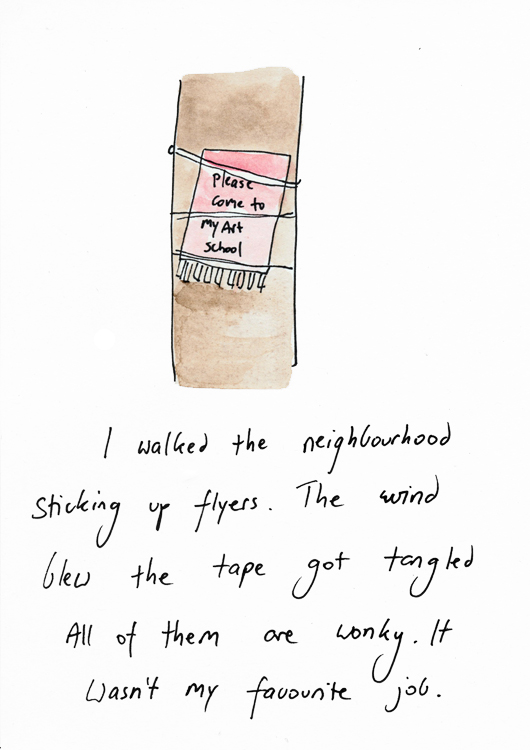 Please
Come to
My Art
School
I walked the neighbourhood
sticking up flyers. The wind
blew the tape got tangled
All of them are wonky. It
wasn't my favourite job.